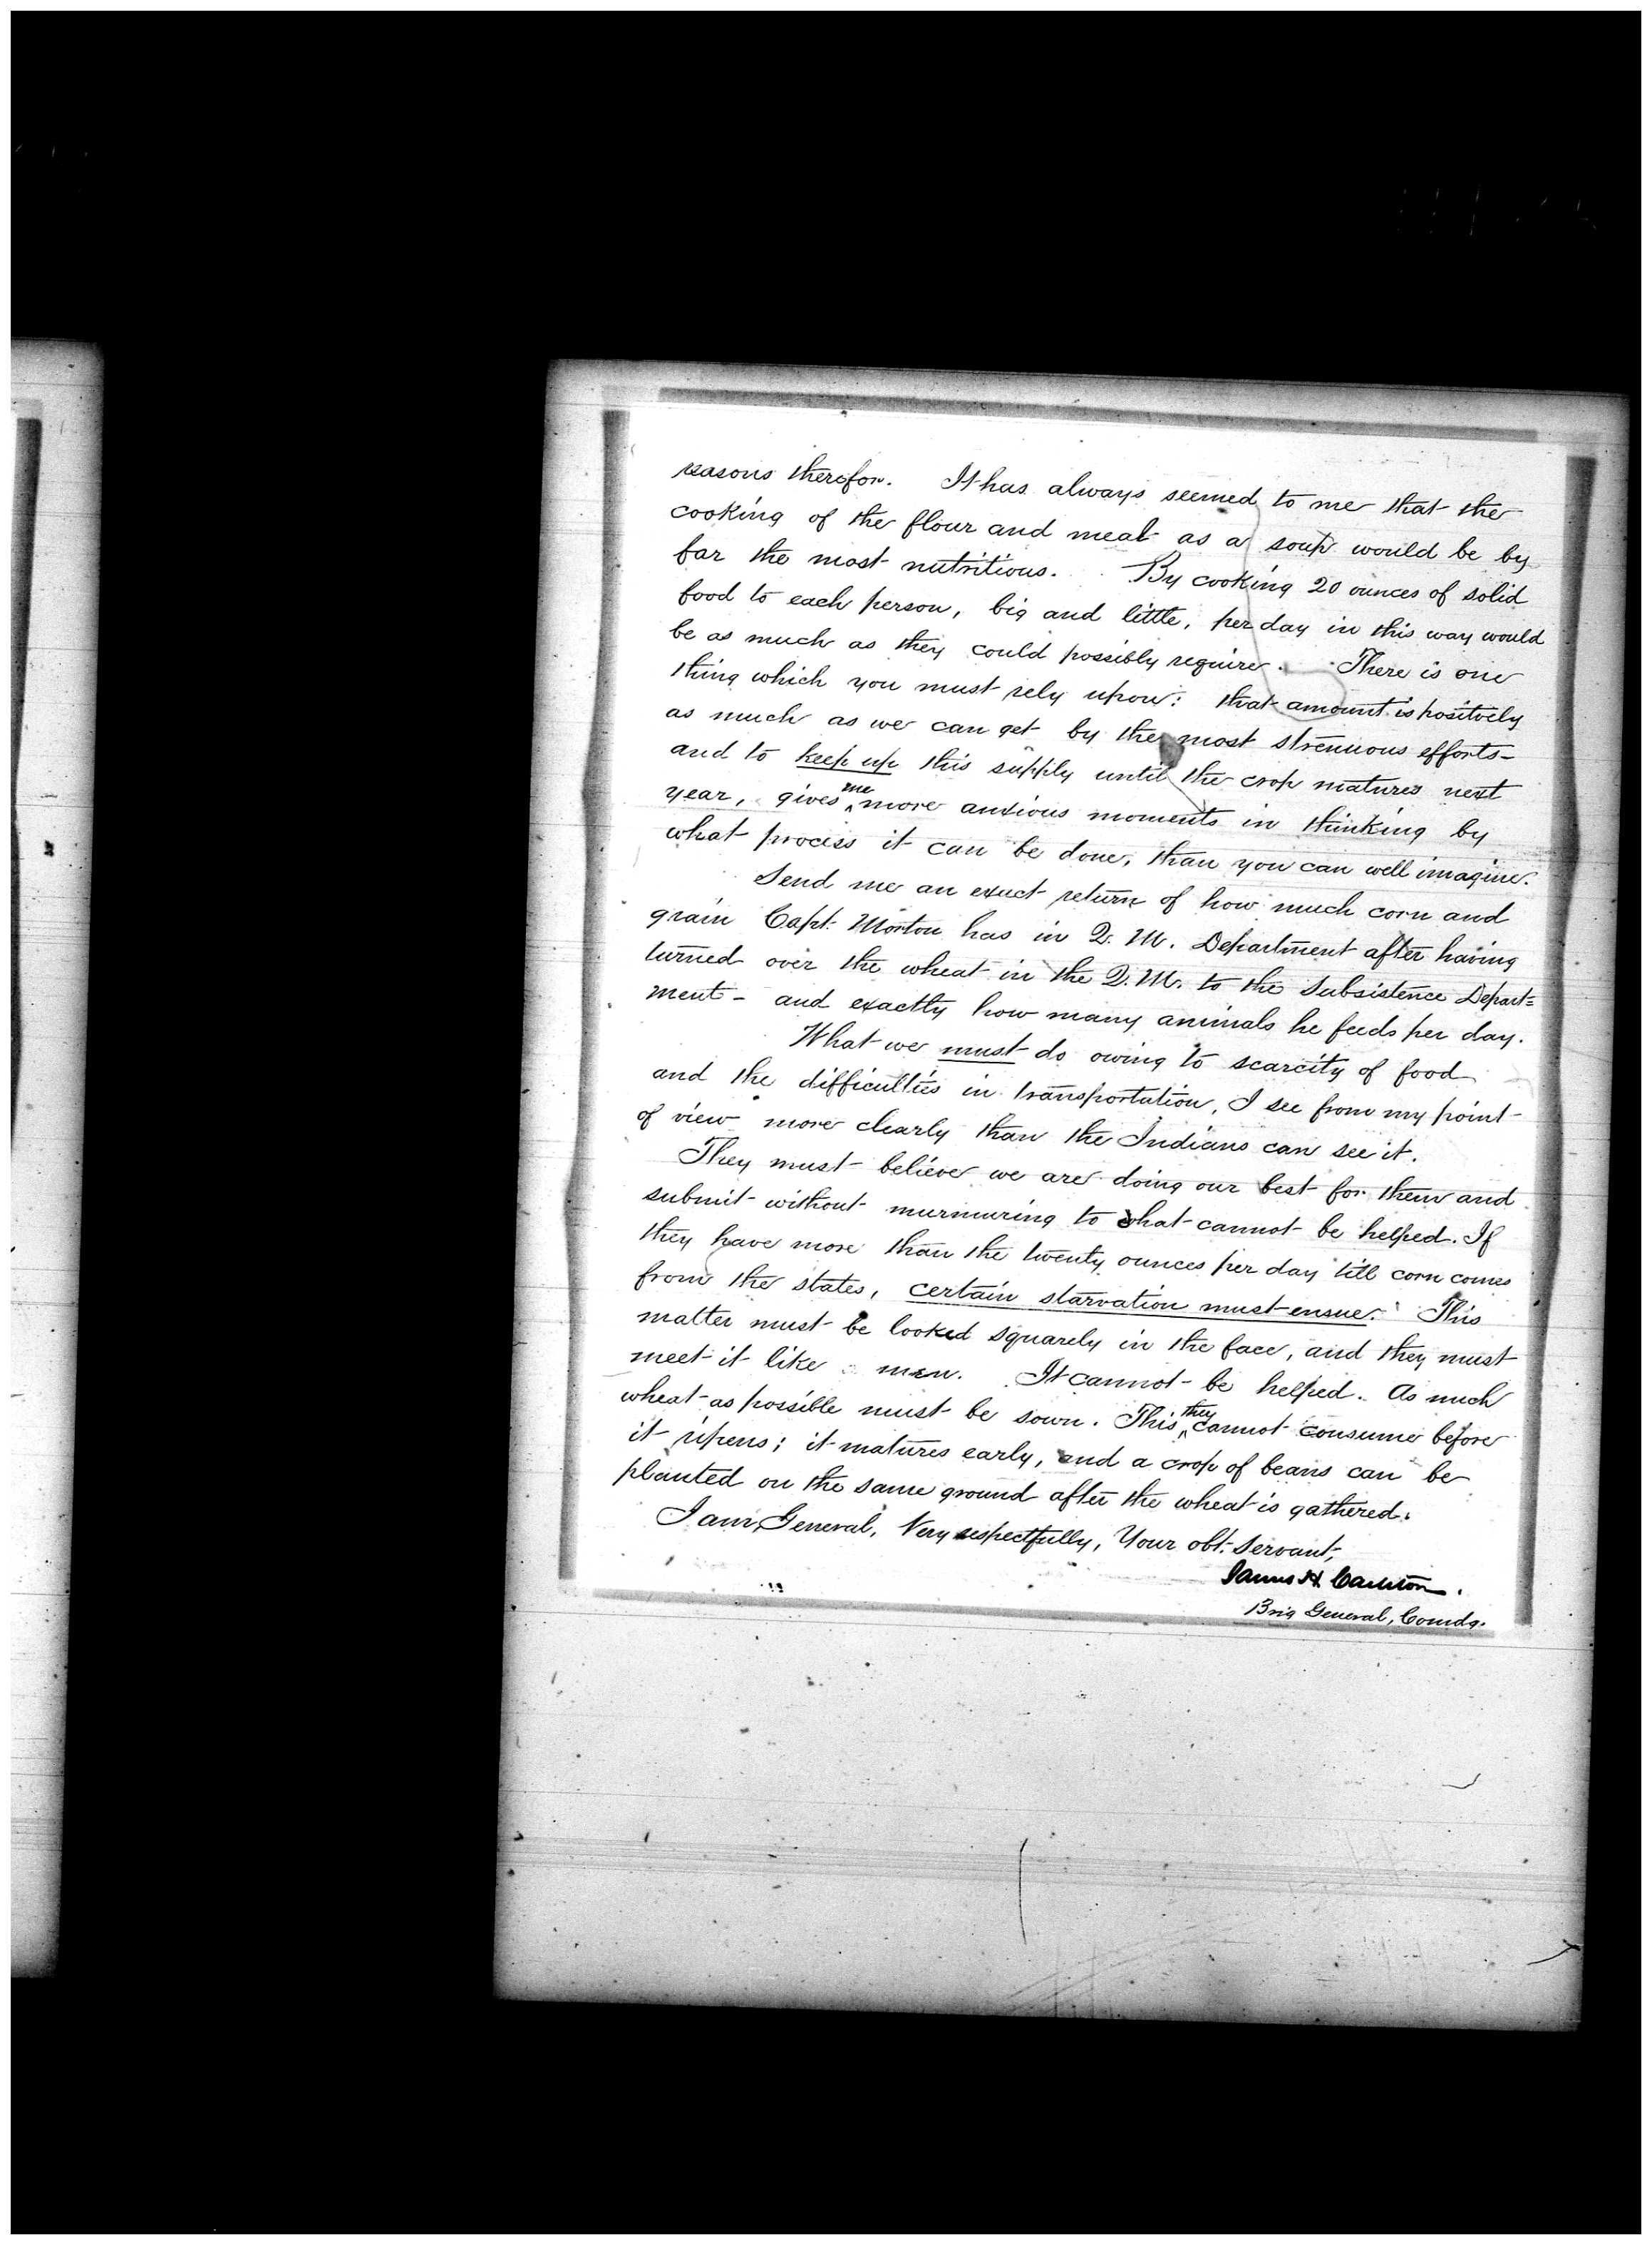 reasons therefor. It has always seemed to me that the
cooking of the flour and meal as a soup would be by
far the most nutritious. By cooking 20 ounces of solid
food to each person, big and little, per day in this way would
be as much as they could possibly require. There is one
thing which you must rely upon: that amount is positively
as much as we can get by the most strenuous efforts—
and to keep up this supply until the crop matures next
year, gives me more anxious moments in thinking by
what process it can be done, than you can well imagine.
Send me an exact return of how much corn and
grain Capt. Morton has in Q. M. Department after having
turned over the wheat in the Q. M. to the Subsistence Depart=
ment — and exactly how many animals he feeds per day.
What we must do owing to scarcity of food
and the difficulties in transportation, I see from my point
of view more clearly than the Indians can see it.
They must believe we are doing our best for them and
submit without murmuring to what cannot be helped. If
they have more than the twenty ounces per day till corn comes
from the states, certain starvation must ensue. This
matter must be looked squarely in the face, and they must
meet it like men. It cannot be helped. As much
wheat as possible must be sown. This they cannot consume before
it ripens; it matures early, and a crop of beans can be
planted on the same ground after the wheat is gathered.
I am, General, Very respectfully, Your obt. servant,
James H. Carleton.
Brig General, Comdg.